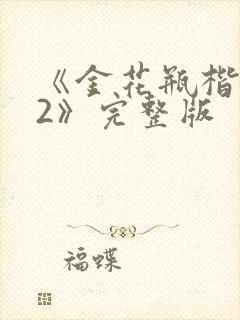 《金花瓶楷
2》完整版
福蝶